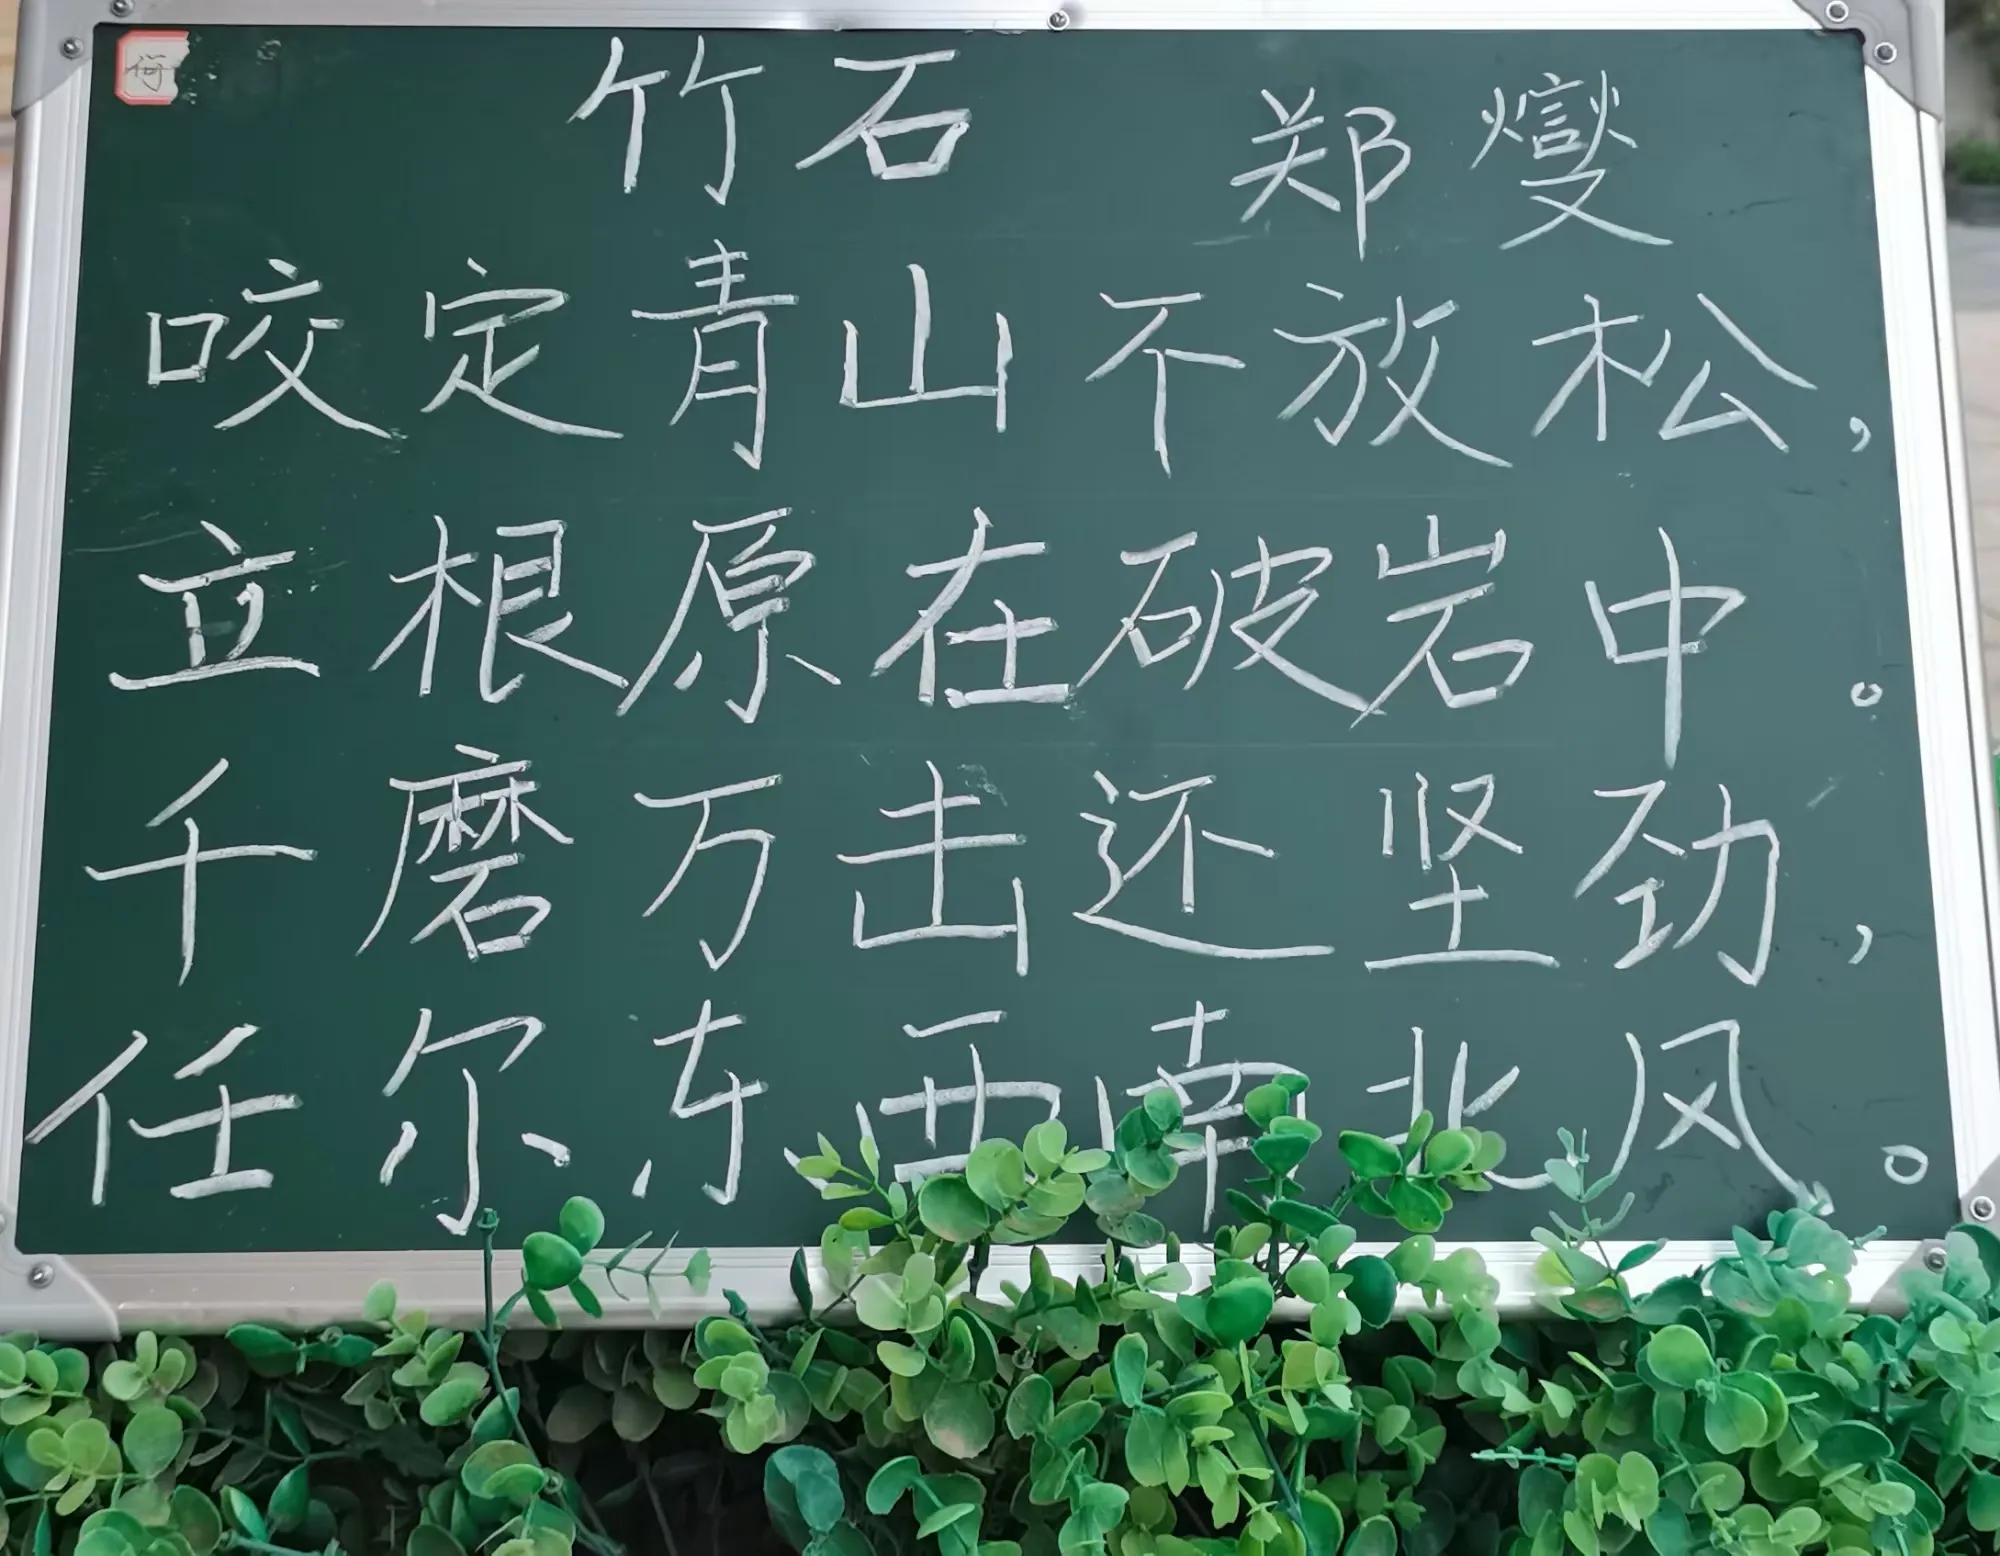 竹石 郑燮
咬定青山不放松，
立根原在破岩中。
千磨万击还坚劲，
任尔东西南北风。